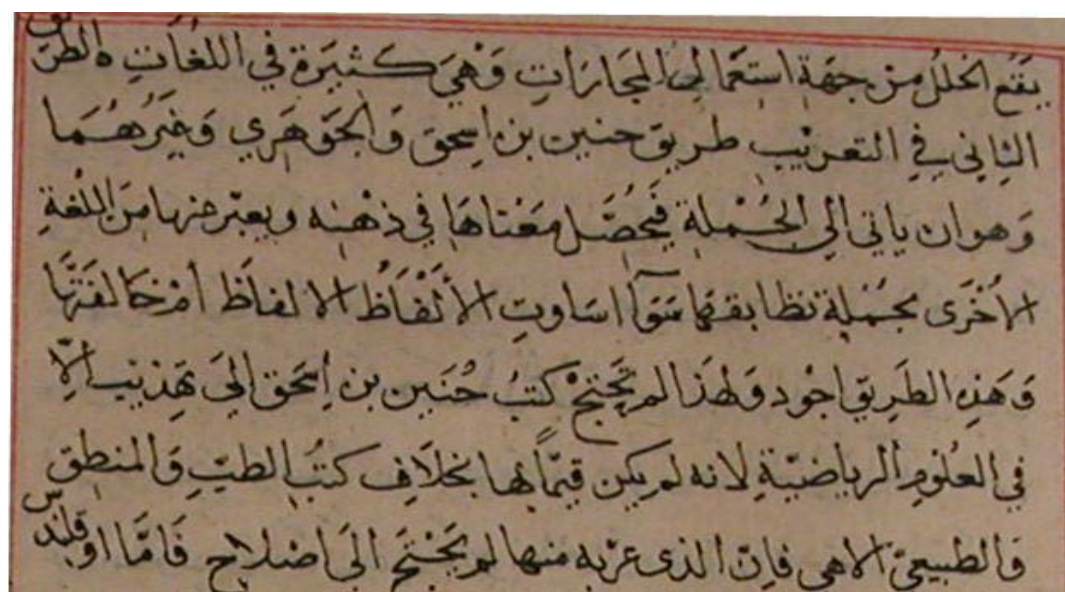 يَقَع الخلَلُ مِنْ جِهَةِ اسْتِعْمَالِ المجَازَاتِ وَهْيَ كَثِيَرة في اللغَاتِ الطرَيق
الثاِنى فِي التعرِيْب طريق حنين بن اسِحق وَالجَوهَري وَغيَرهُمَا
وَهو ان ياتى الي الجُمْلة فيَحُصَّل مَعْنَاهَا في ذهْنِه ويعبّر عنها مِنَ اللغةِ
الاُخْرَى بجُمْلة تطابقهَا سَوَآ اسَاوتِ الاَلْفَاظُ الالفاظ اَمْ خَالفَتْهَا
وَهَذِه الطَرِيق اجْود وَلهَذا لم تَحتَجْ كتبُ حُنَين بن اِسْحَق اليَ تَهِذيب الاّ
في العُلوُم الرياضيّةِ لانه لم يكن قيّمًا بها بخلاَفِ كتبُ الطبّ وَالمنطِق
وَالطبيعيّ الالاهى فاِنّ الذى عرّبه منها لم يَحْتَجْ الىَ اصْلاح فَامَّا اوقليدس